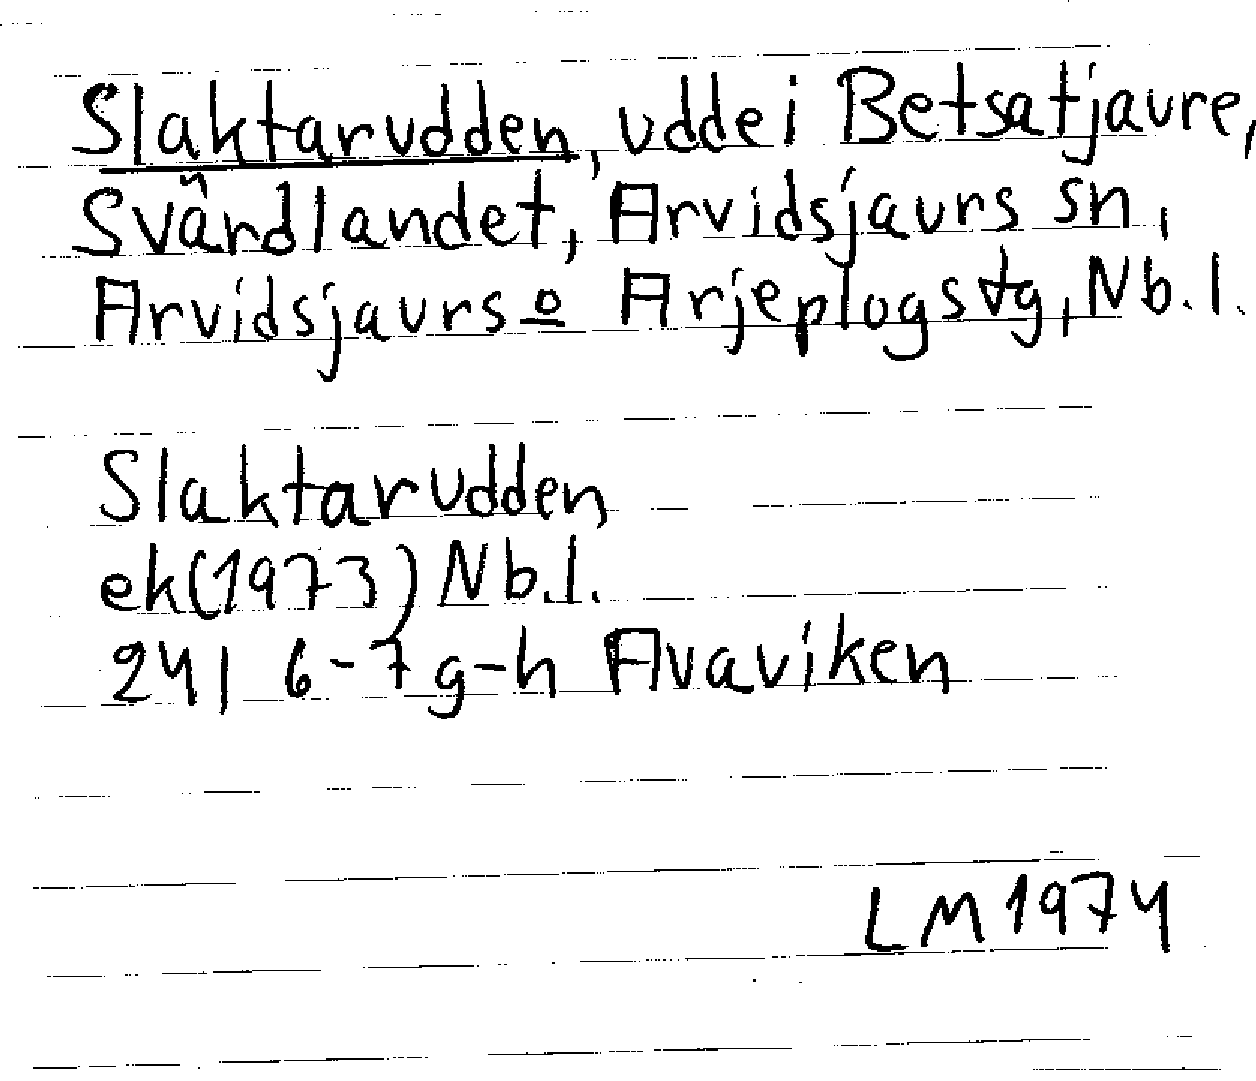 Slaktarudden, udde i Betsatjaure,
Svärdlandet, Arvidsjaurs sn,
Arvidsjaurs o Arjeplogs tg, Nb.l.
Slaktarudden
ek(1973) Nb.l.
24I 6-7g-h Avaviken
LM 1974